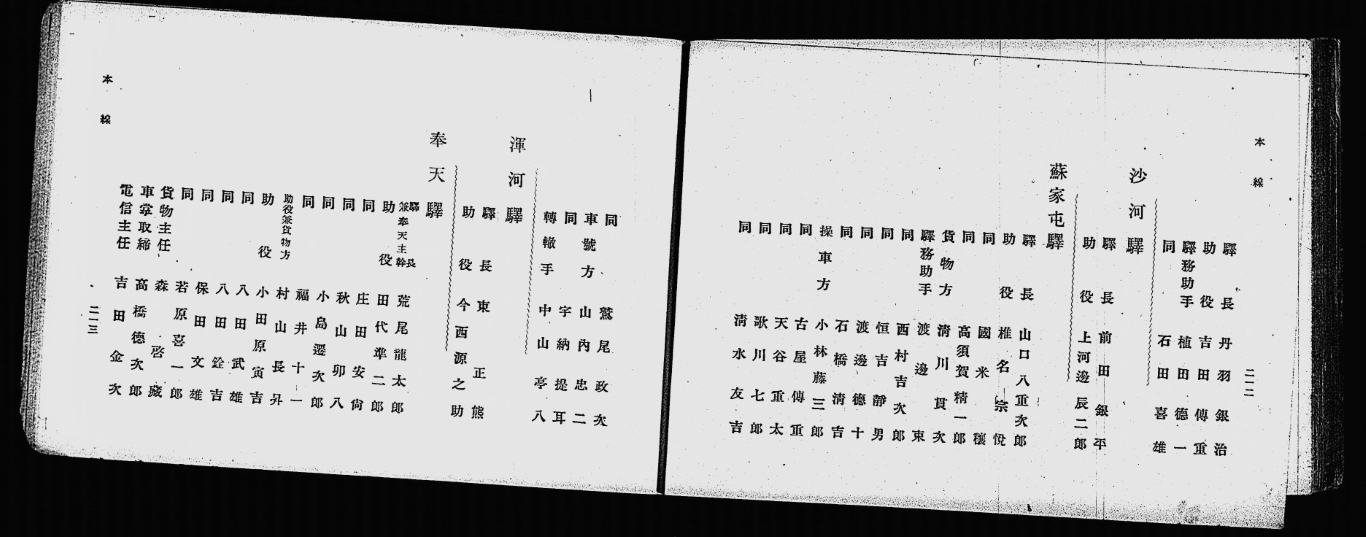 本線
二一二
驛長 丹羽銀治
助役 吉田傳重
驛務助手 植田德一
同 石田喜雄
沙河驛
驛長 前田銀平
助役 上河邊辰二郎
蘇家屯驛
驛長 山口八重次郎
助役 椎名宗悅
同 國米穰
同 高須賀精一郎
貨物方 清川貫次
驛務助手 渡邊束
同 西村吉次郎
同 恒吉靜男
同 渡邊德十
同 石橋清吉
操車方 小林藤三郎
同 古屋傳重
同 天谷重太
同 歌川七郎
同 清水友吉
同 鷲尾政次
車號方 山內忠二
同 宇納提耳
轉轍手 中山亭八
渾河驛
驛長 東正熊
助役 今西源之助
奉天驛
驛長兼奉天主幹 荒尾龍太郎
助役 田代準二郎
同 庄田安尚
同 秋山卯八
同 小島遷次郎
同 福井十一
助役兼貨物方 村山長昇
助役 小田原寅吉
同 八田武雄
同 八田銓吉
同 保田文雄
同 若原喜一郎
貨物主任 森啓藏
車掌取締 高橋德次郎
電信主任 吉田金次
本線
二一三